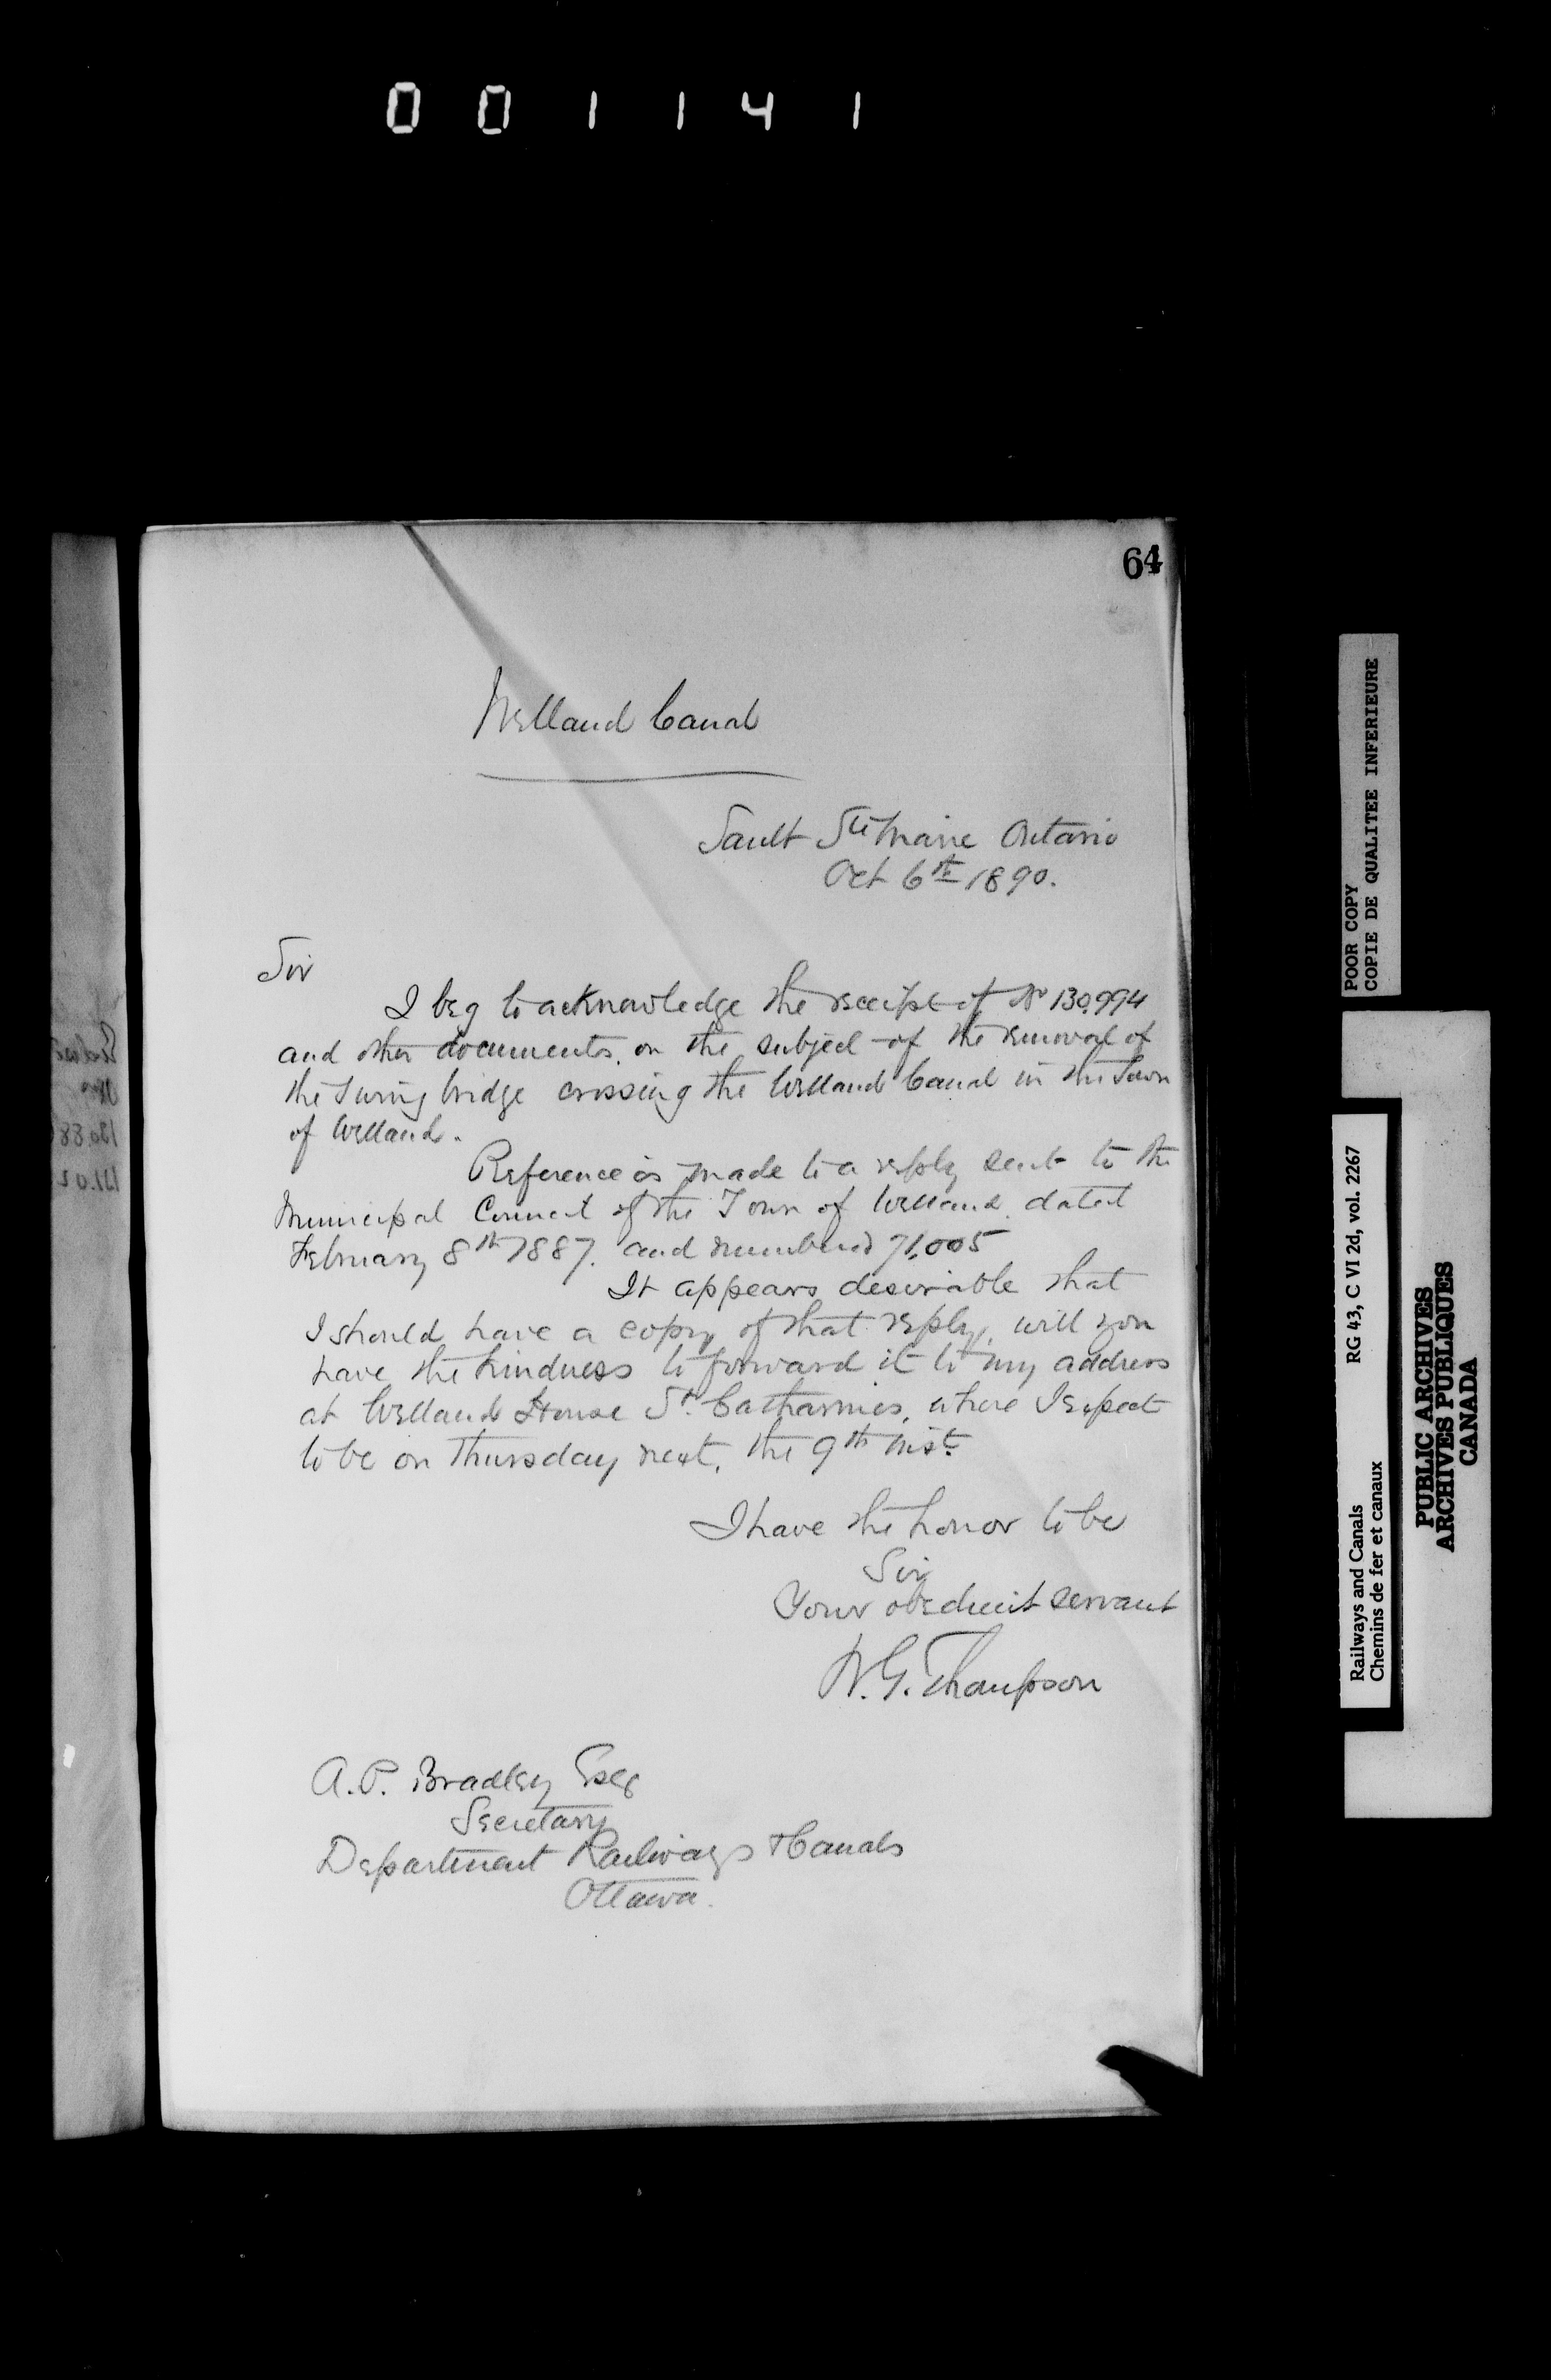 001141
64
Welland Canal
Sault Ste Marie Ontario
Oct 6th 1890.
Sir
I beg to acknowledge the receipt of No 130,994
and other documents, on the subject of the removal of
the Swing bridge crossing the Welland Canal in the Town
of Welland.
Reference is made to a reply sent to the
Municipal Council of the Town of Welland, dated
February 8th 1887. and numbered 71,005
It appears desirable that
I should have a copy of that reply, will you
have the kindness to forward it to my address
at Welland House St. Catharines, where I expect
to be on Thursday next, the 9th inst.
I have the honor to be
Sir
Your obedient servant
W. G. Thompson
A. P. Bradley Esq
Secretary
Department Railways & Canals
Ottawa.
POOR COPY
COPIE DE QUALITEE INFERIEURE
Railways and Canals RG 43, C VI 2d, vol. 2267
Chemins de fer et canaux
PUBLIC ARCHIVES
ARCHIVES PUBLIQUES
CANADA